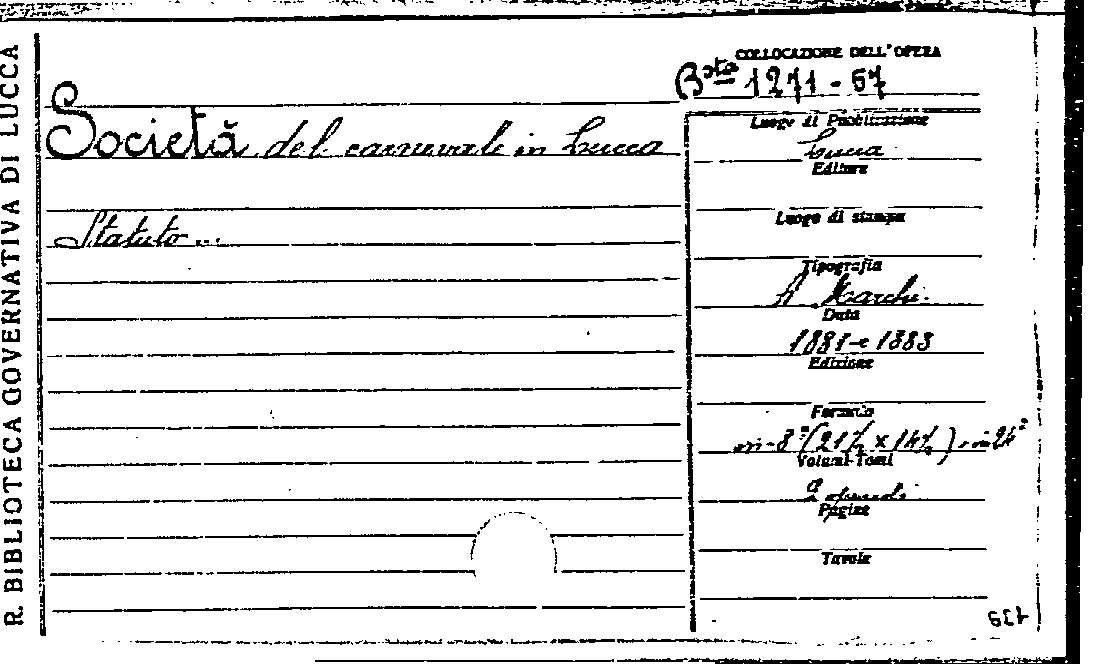 R. BIBLIOTECA GOVERNATIVA DI LUCCA
COLLOCAZIONE DELL'OPERA
Bsta 1271 - 67
Società del carnevale in Lucca
Statuto...
Luogo di Pubblicazione
Lucca
Editore
Luogo di stampa
Tipografia
Marchi.
Data
1881 e 1883
Edizione
Formato
in-8° (21½ x 14½) in 24°
Volumi-Tomi
2 opuscoli
Pagine
Tavole
139